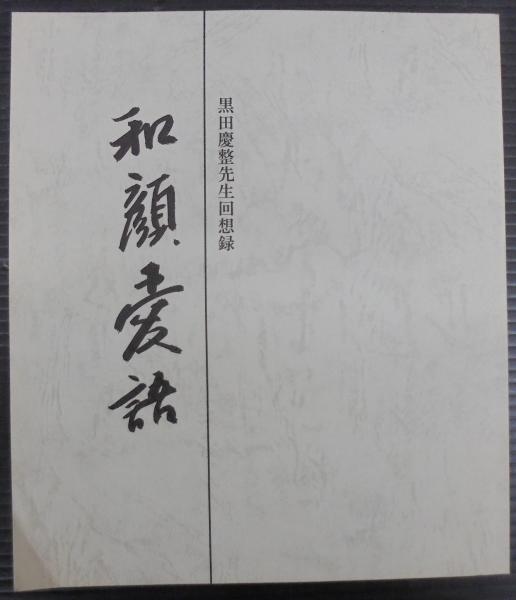 黒田慶整先生回想録
和顔愛語